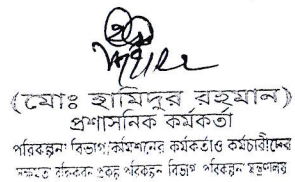 (মোঃ হামিদুর রহমান)
প্রশাসনিক কর্মকর্তা
পরিকল্পনা বিভাগ/কমিশনের কর্মকর্তাও কর্মচারীদের
দক্ষতা বৃদ্ধিকরন প্রকল্প পরিকল্পনা বিভাগ পরিকল্পনা মন্ত্রণালয়